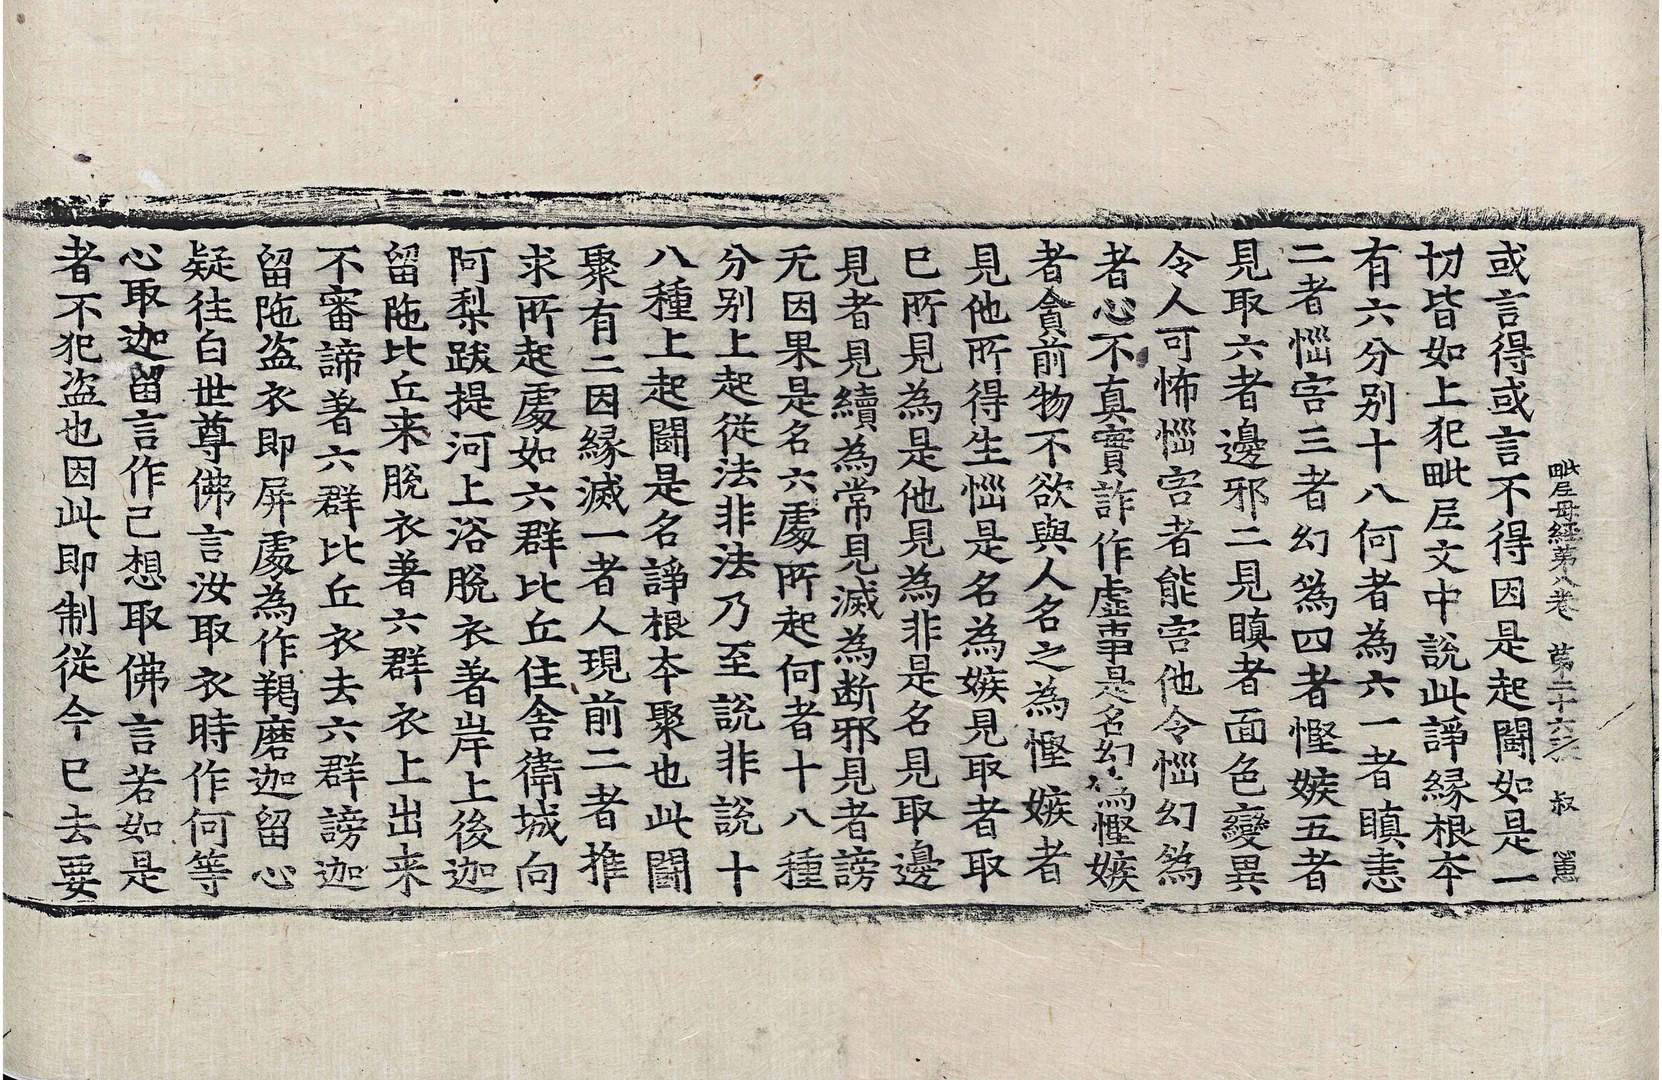 毗尼母經第八卷 第二十六張 叔
或言得或言不得因是起鬪如是一
切皆如上犯毗尼文中說此諍緣根本
有六分别十八何者為六一者瞋恚
二者惱害三者幻為四者慳嫉五者
見取六者邊邪二見瞋者面色變異
令人可怖惱害者能害他令惱幻為
者心不真實詐作虛事是名幻為慳嫉
者貪前物不欲與人名之為慳嫉者
見他所得生惱是名為嫉見取者取
已所見為是他見為非是名見取邊
見者見續為常見滅為断邪見者謗
无因果是名六處所起何者十八種
分别上起從法非法乃至說非說十
八種上起鬪是名諍根本聚也此鬪
聚有二因緣滅一者人現前二者推
求所起處如六群比丘住舍衛城向
阿梨跋提河上浴脫衣著岸上後迦
留陁比丘来脫衣著六群衣上出来
不審諦著六群比丘衣去六群謗迦
留陁盗衣即屏處為作羯磨迦留心
疑往白世尊佛言汝取衣時作何等
心取迦留言作己想取佛言若如是
者不犯盗也因此即制從今已去要